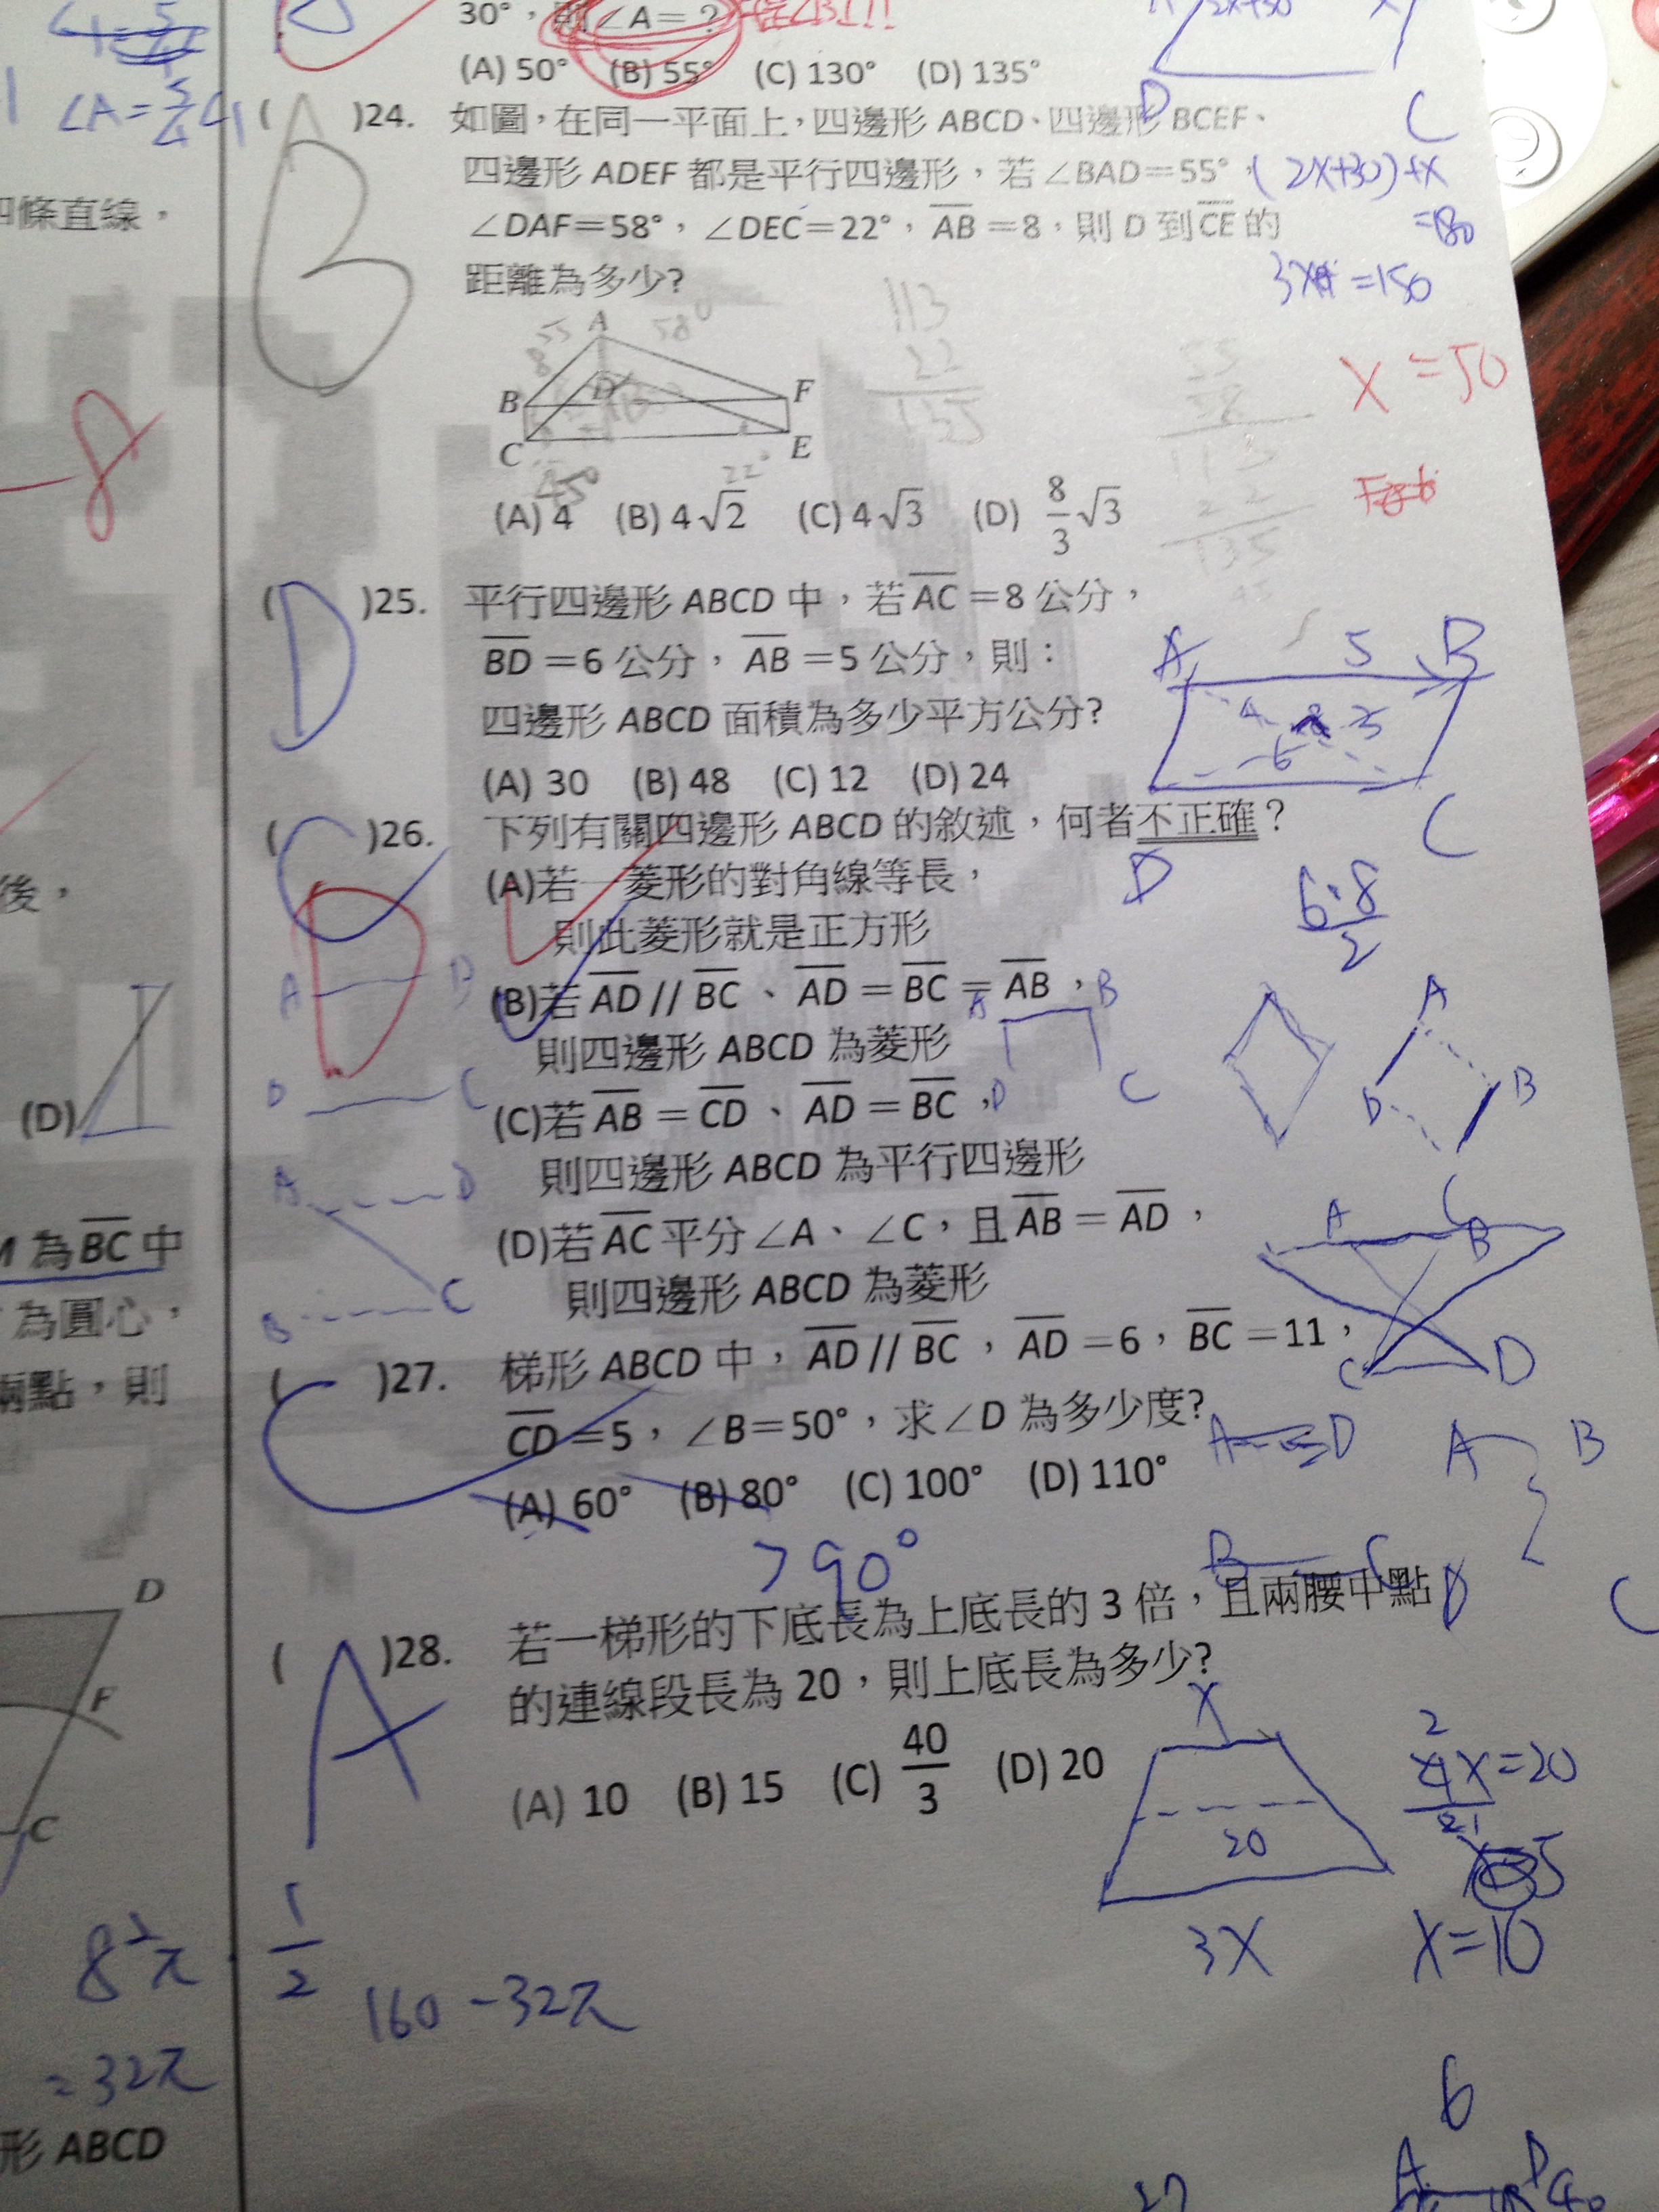 30°，則∠A=？
(A) 50° (B) 55° (C) 130° (D) 135°
∠A=
( B )24. 如圖，在同一平面上，四邊形 ABCD、四邊形 BCEF、
四邊形 ADEF 都是平行四邊形，若∠BAD=55°，
∠DAF=58°，∠DEC=22°，AB=8，則 D 到CE的
距離為多少?
(2x+30)+x
=180
=150
x=50
113
22
135
55 A 58°
8
B D F
C E
45° 22°
(A) 4 (B) 4√2 (C) 4√3 (D) 8/3 √3
( D )25. 平行四邊形 ABCD 中，若AC=8 公分，
BD=6 公分，AB=5 公分，則：
四邊形 ABCD 面積為多少平方公分?
(A) 30 (B) 48 (C) 12 (D) 24
A 5 B
D C
6·8
2
( C )26. 下列有關四邊形 ABCD 的敘述，何者不正確？
D
(A)若一菱形的對角線等長，
則此菱形就是正方形
(B)若 AD // BC、AD=BC=AB，
則四邊形 ABCD 為菱形
(C)若 AB=CD、AD=BC，
則四邊形 ABCD 為平行四邊形
(D)若 AC 平分∠A、∠C，且 AB=AD，
則四邊形 ABCD 為菱形
( C )27. 梯形 ABCD 中，AD // BC，AD=6，BC=11，
CD=5，∠B=50°，求∠D 為多少度?
(A) 60° (B) 80° (C) 100° (D) 110°
>90°
( A )28. 若一梯形的下底長為上底長的 3 倍，且兩腰中點
的連線段長為 20，則上底長為多少?
(A) 10 (B) 15 (C) 40/3 (D) 20
X
20
3X
4X=20
X=10
四條直線，
-8
後，
(D)
M 為BC中
為圓心，
兩點，則
D
F
C
8²π·1/2
=32π
160-32π
形 ABCD
6
A D